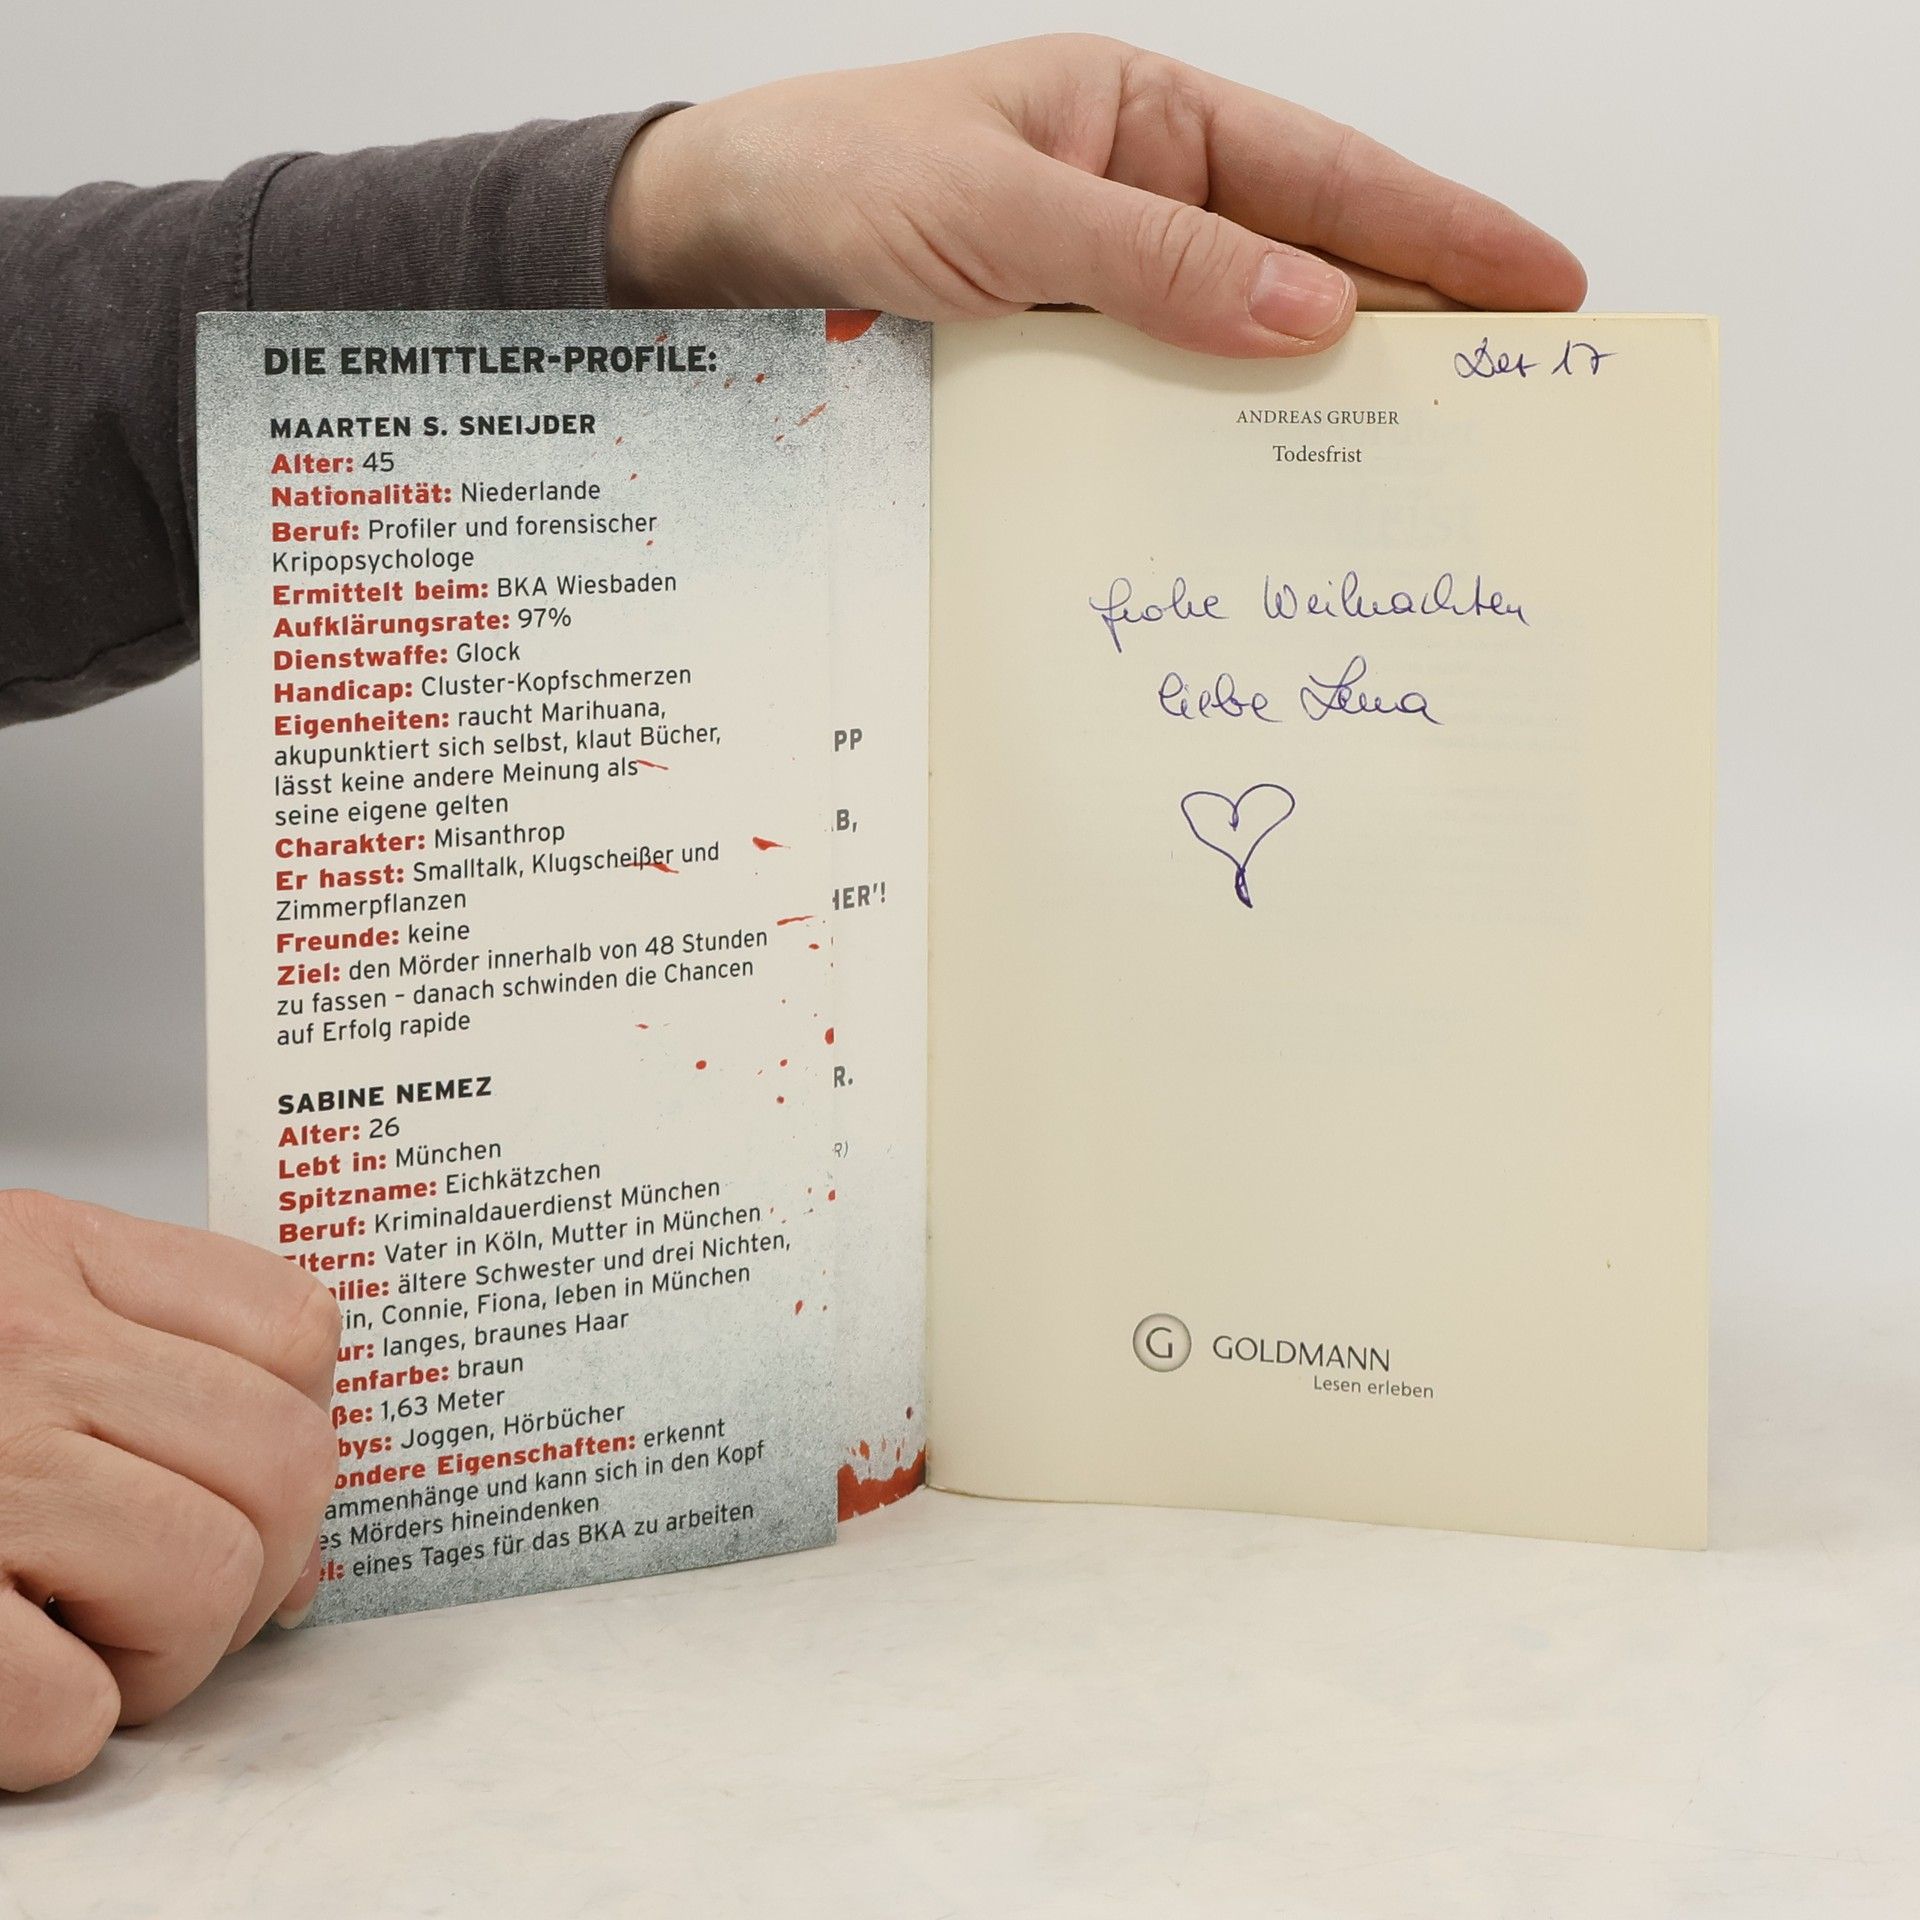 DIE ERMITTLER-PROFILE:
MAARTEN S. SNEIJDER
Alter: 45
Nationalität: Niederlande
Beruf: Profiler und forensischer
Kripopsychologe
Ermittelt beim: BKA Wiesbaden
Aufklärungsrate: 97%
Dienstwaffe: Glock
Handicap: Cluster-Kopfschmerzen
Eigenheiten: raucht Marihuana,
akupunktiert sich selbst, klaut Bücher,
lässt keine andere Meinung als
seine eigene gelten
Charakter: Misanthrop
Er hasst: Smalltalk, Klugscheißer und
Zimmerpflanzen
Freunde: keine
Ziel: den Mörder innerhalb von 48 Stunden
zu fassen – danach schwinden die Chancen
auf Erfolg rapide
SABINE NEMEZ
Alter: 26
Lebt in: München
Spitzname: Eichkätzchen
Beruf: Kriminaldauerdienst München
ltern: Vater in Köln, Mutter in München
ilie: ältere Schwester und drei Nichten,
in, Connie, Fiona, leben in München
ur: langes, braunes Haar
enfarbe: braun
ße: 1,63 Meter
bys: Joggen, Hörbücher
ondere Eigenschaften: erkennt
ammenhänge und kann sich in den Kopf
es Mörders hineindenken
el: eines Tages für das BKA zu arbeiten
PP
B,
HER'!
R.
R)
17
ANDREAS GRUBER
Todesfrist
frohe Weihnachten
liebe Lena
G GOLDMANN
Lesen erleben